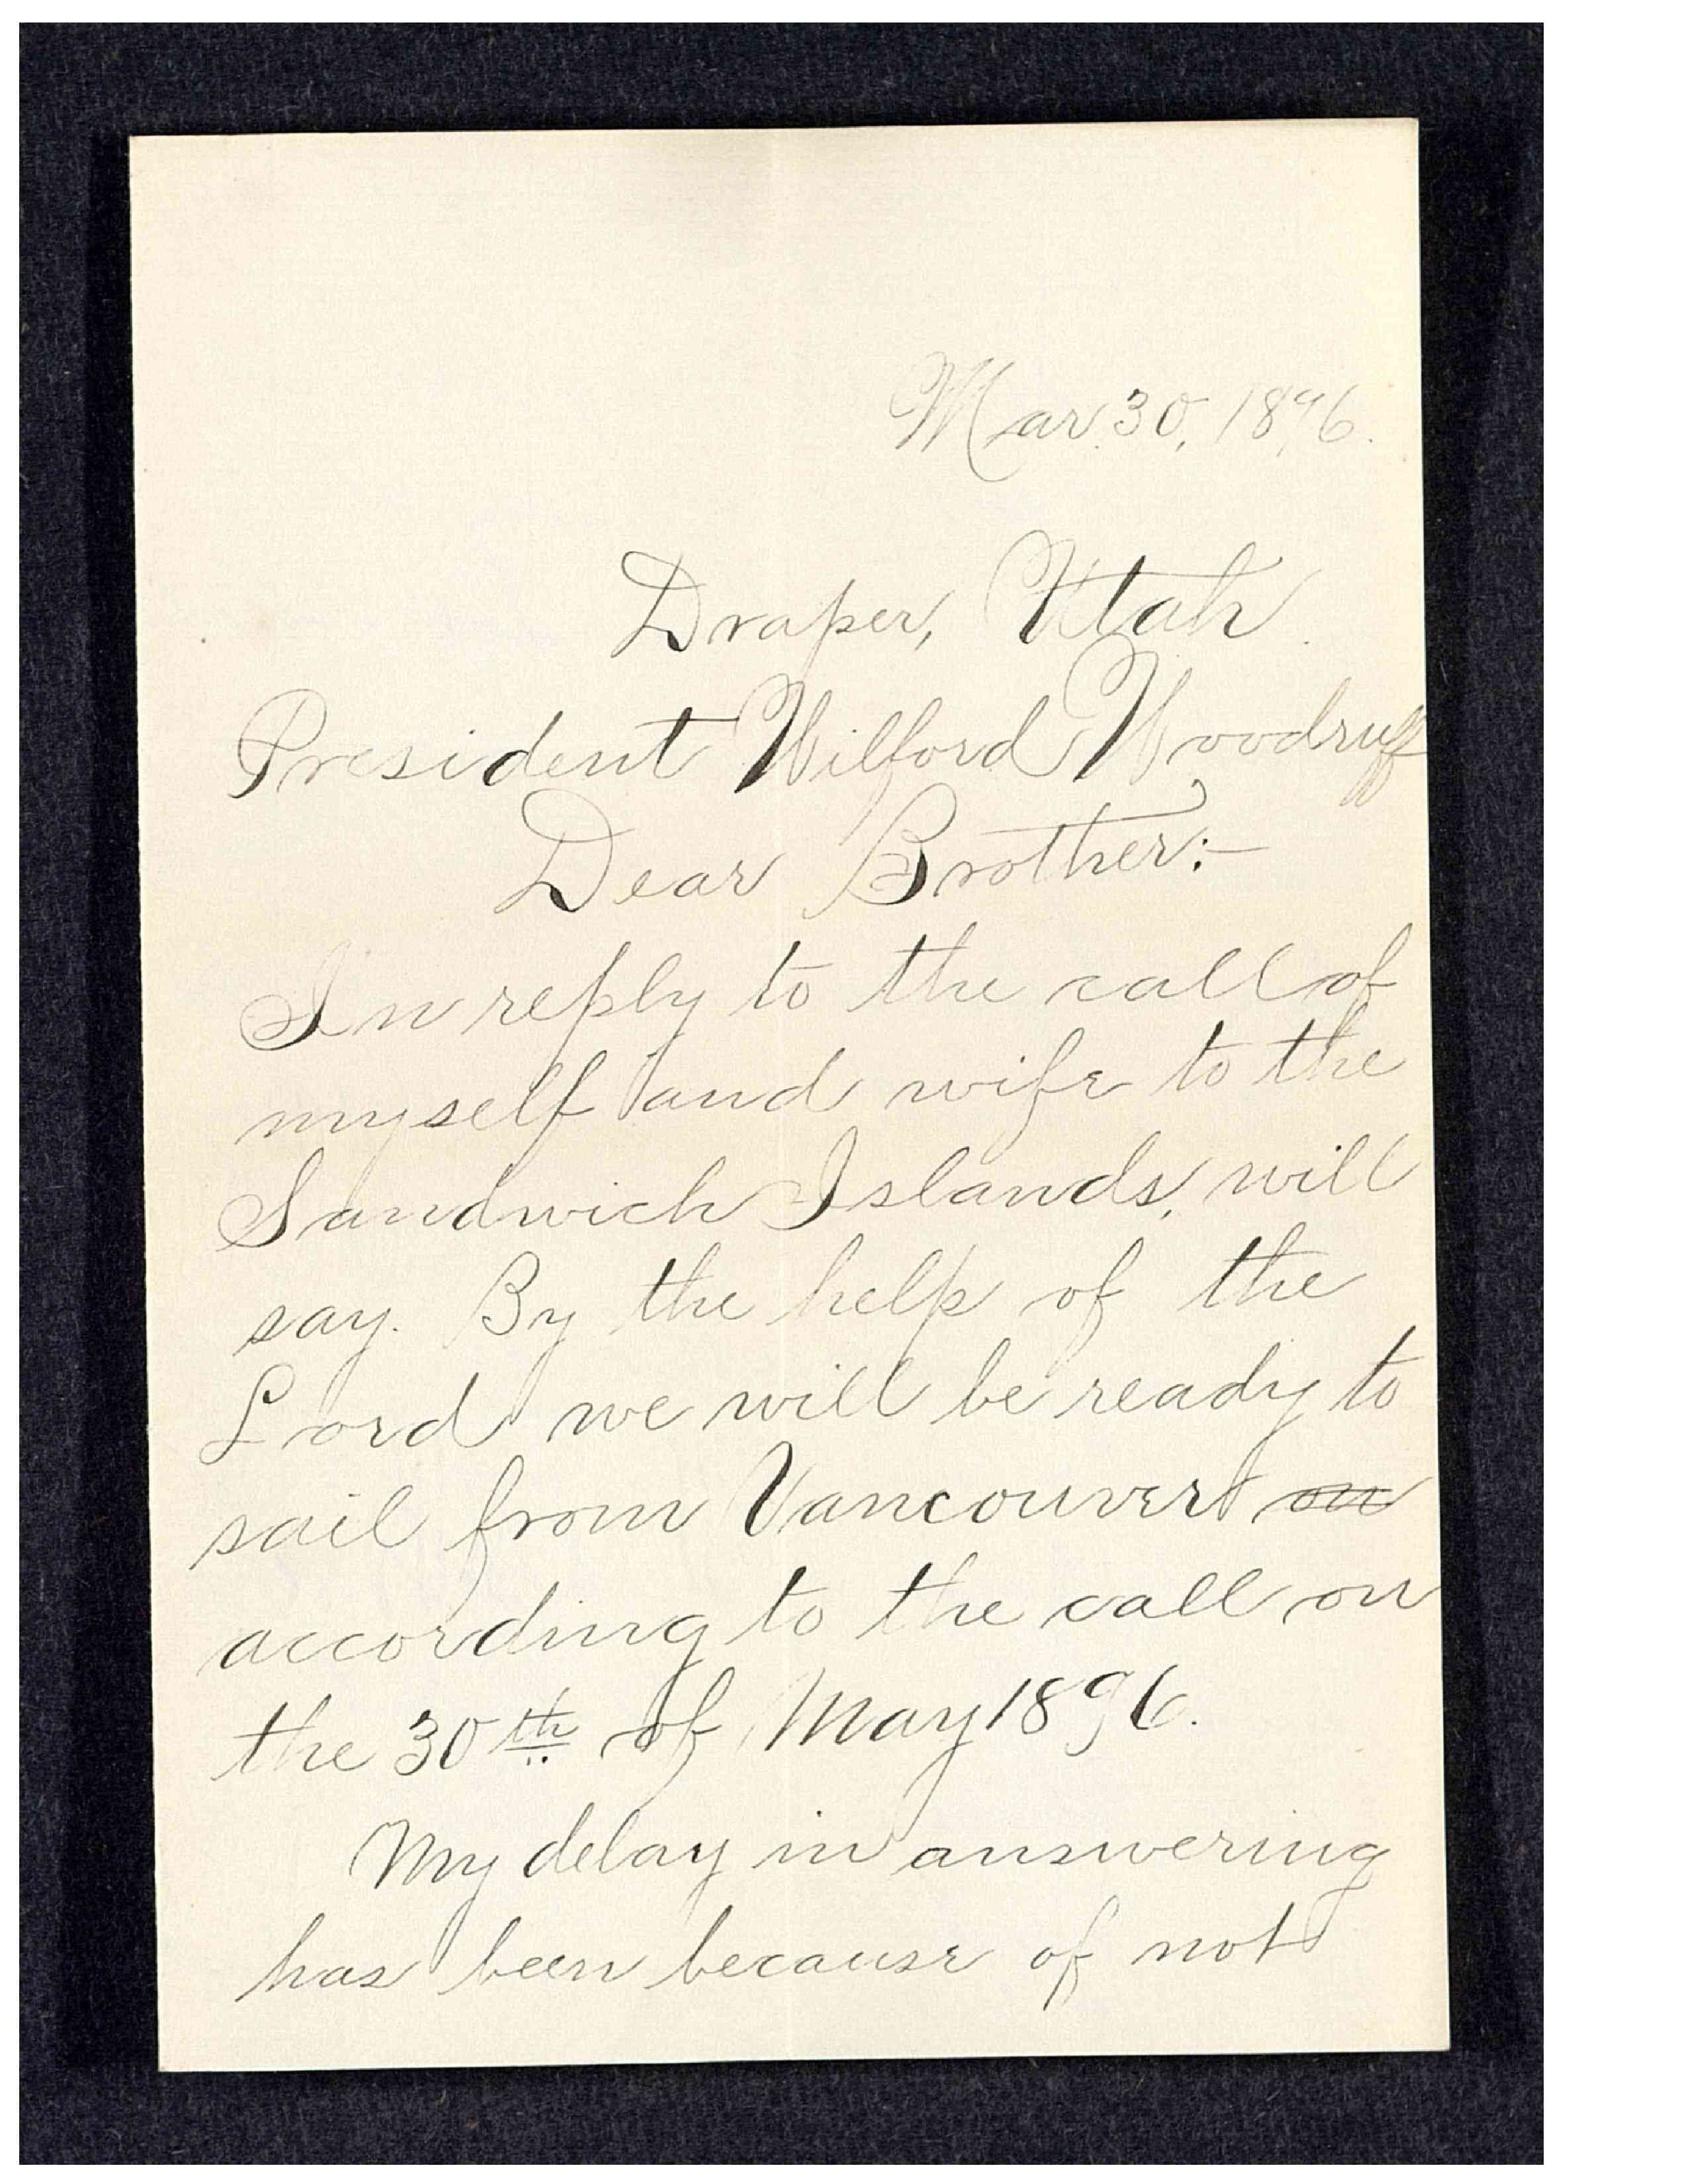 Mar. 30, 1896.
Draper, Utah.
President Wilford Woodruff
Dear Brother:–
In reply to the call of
myself and wife to the
Sandwich Islands, will
say. By the help of the
Lord we will be ready to
sail from Vancouver on
according to the call on
the 30th of May 1896.
My delay in answering
has been because of not